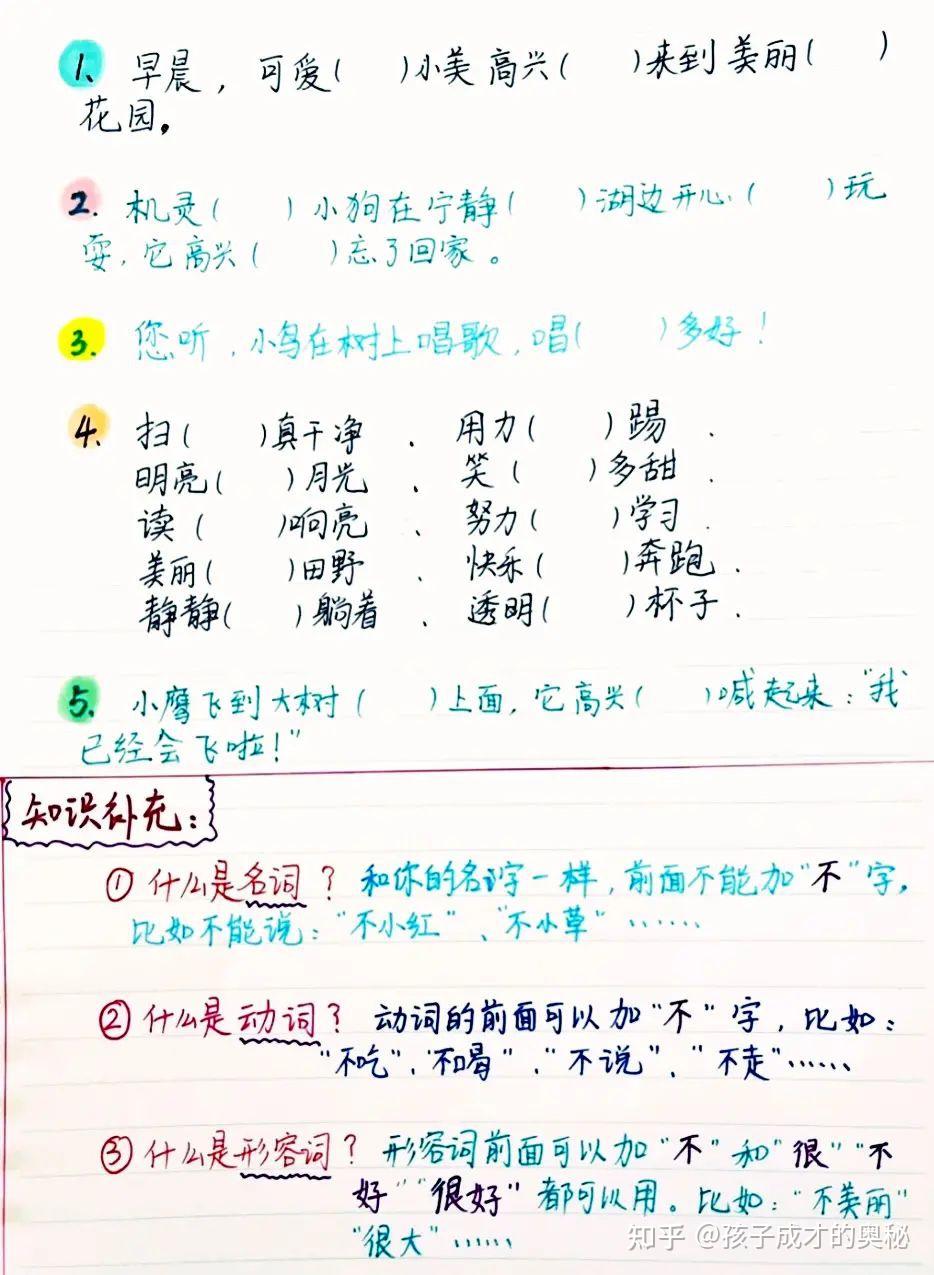 1. 早晨，可爱(  )小美高兴(  )来到美丽(  )
花园。
2. 机灵(  )小狗在宁静(  )湖边开心(  )玩
耍，它高兴(  )忘了回家。
3. 您听，小鸟在树上唱歌，唱(  )多好！
4. 扫(  )真干净、用力(  )踢、
明亮(  )月光、笑(  )多甜、
读(  )响亮、努力(  )学习、
美丽(  )田野、快乐(  )奔跑、
静静(  )躺着、透明(  )杯子、
5. 小鹰飞到大树(  )上面，它高兴(  )喊起来："我
已经会飞啦！"
知识补充：
① 什么是名词？和你的名字一样，前面不能加"不"字，
比如不能说："不小红"、"不小草"……
② 什么是动词？动词的前面可以加"不"字，比如：
"不吃"、"不喝"、"不说"、"不走"……
③ 什么是形容词？形容词前面可以加"不"和"很""不
好""很好"都可以用。比如："不美丽"
"很大"……
知乎 @孩子成才的奥秘